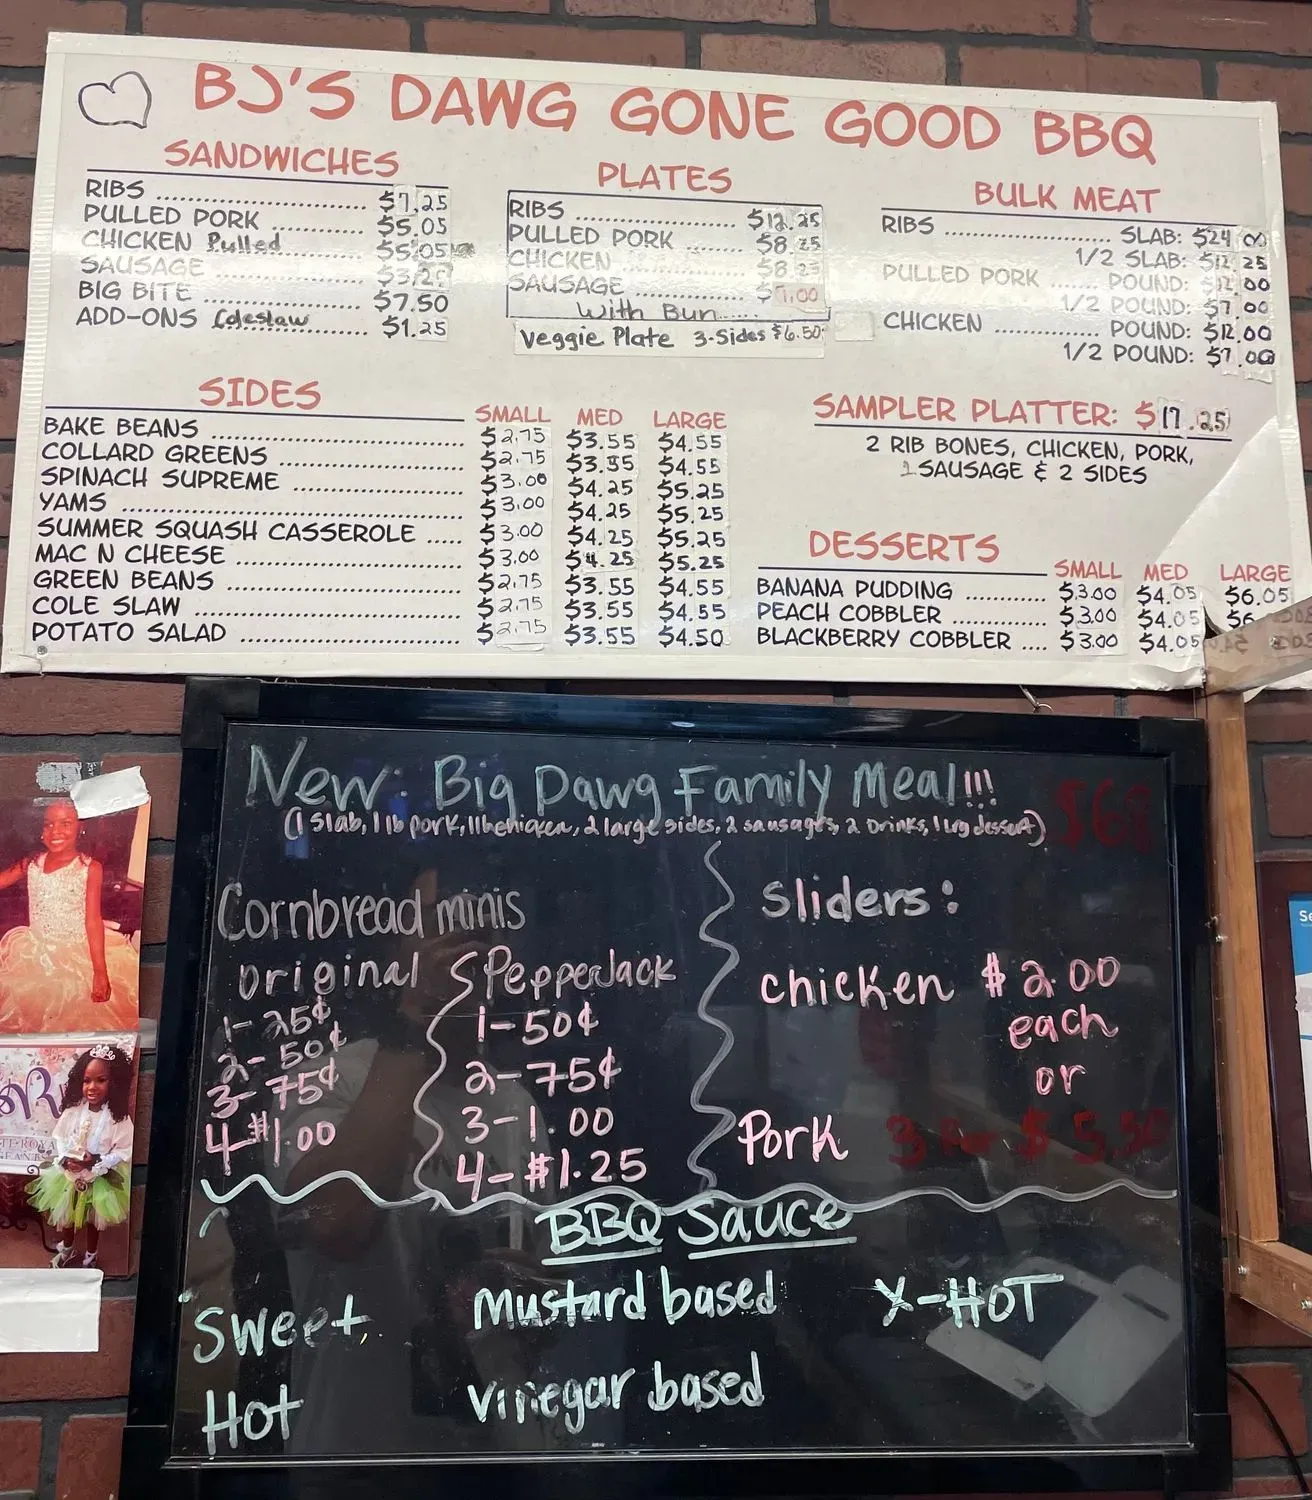 BJ'S DAWG GONE GOOD BBQ
SANDWICHES
RIBS ........................ $7.25
PULLED PORK ............ $5.05
CHICKEN Pulled ............ $5.05
SAUSAGE .................. $3.2
BIG BITE .................. $7.50
ADD-ONS Coleslaw ........ $1.25
PLATES
RIBS .................. $12.25
PULLED PORK ...... $8.25
CHICKEN ............ $8.25
SAUSAGE ............ $7.00
With Bun......
Veggie Plate 3-Sides $6.50
BULK MEAT
RIBS ........................ SLAB: $24.00
1/2 SLAB: $12.25
PULLED PORK ....... POUND: $12.00
1/2 POUND: $7.00
CHICKEN ............... POUND: $12.00
1/2 POUND: $7.00
SIDES
SMALL MED LARGE
BAKE BEANS ........................ $2.75 $3.55 $4.55
COLLARD GREENS .................. $2.75 $3.55 $4.55
SPINACH SUPREME ................ $3.00 $4.25 $5.25
YAMS .............................. $3.00 $4.25 $5.25
SUMMER SQUASH CASSEROLE ..... $3.00 $4.25 $5.25
MAC N CHEESE ..................... $3.00 $4.25 $5.25
GREEN BEANS ...................... $2.75 $3.55 $4.55
COLE SLAW ........................ $2.75 $3.55 $4.55
POTATO SALAD ..................... $2.75 $3.55 $4.50
SAMPLER PLATTER: $17.25
2 RIB BONES, CHICKEN, PORK,
1 SAUSAGE & 2 SIDES
DESSERTS
SMALL MED LARGE
BANANA PUDDING ........... $3.00 $4.05 $6.05
PEACH COBBLER ............ $3.00 $4.05 $6
BLACKBERRY COBBLER .... $3.00 $4.05
New: Big Dawg Family Meal!!! $68
(1 slab, 1 lb pork, 1 lb chicken, 2 large sides, 2 sausages, 2 Drinks, 1 Lrg dessert)
Cornbread minis
original PepperJack
1- 25¢ 1-50¢
2- 50¢ 2-75¢
3- 75¢ 3-1.00
4-$1.00 4-$1.25
sliders:
chicken $2.00
each
or
Pork 3 For $5.50
BBQ Sauce
Sweet Mustard based X-HOT
Hot Vinegar based